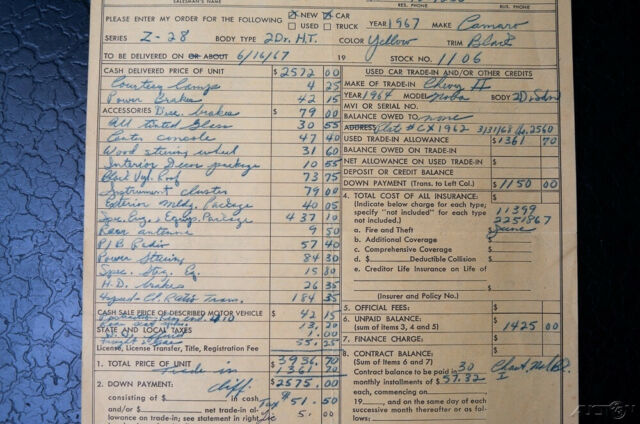 SALESMAN'S NAME RES. PHONE BUS. PHONE
PLEASE ENTER MY ORDER FOR THE FOLLOWING ☒ NEW ☒ CAR YEAR 1967 MAKE Camaro
☐ USED ☐ TRUCK
SERIES Z-28 BODY TYPE 2Dr. H.T. COLOR Yellow TRIM Black
TO BE DELIVERED ON OR ABOUT 6/16/67 19 STOCK NO. 1106
CASH DELIVERED PRICE OF UNIT $ 2572 00
Courtesy Lamps 4 25
Power Brakes 42 15
ACCESSORIES Disc. brakes 79 00
All tinted Glass 30 55
Center console 47 40
Wood steering wheel 31 60
Interior Decor package 10 55
Black Vyl. Roof 73 75
Instrument cluster 79 00
Exterior Mldg. Package 40 05
Spec. Eng. & Equip. Package 437 10
Rear antenna 9 50
P/B Radio 57 40
Power Steering 84 30
Spec. Strg. Eq. 15 80
H.D. brakes 26 35
Ratio Tran. 184 35
CASH SALE PRICE OF DESCRIBED MOTOR VEHICLE $ 42 15
13.20
STATE AND LOCAL TAXES 1.00
55.25
License, License Transfer, Title, Registration Fee
1. TOTAL PRICE OF UNIT $ 3936.70
Trade in 1361 70
2. DOWN PAYMENT: $2575.00
consisting of $ in cash Tax $51.50
and/or $ net trade-in al-
lowance on trade-in; see statement in right 5.00
USED CAR TRADE-IN AND/OR OTHER CREDITS
MAKE OF TRADE-IN Chevy II
YEAR 1964 MODEL Nova BODY 2D. Sdn
MVI OR SERIAL NO.
BALANCE OWED TO none
ADDRESS Plat # CX1962 3/31/68 2560
USED TRADE-IN ALLOWANCE $ 1361 70
BALANCE OWED ON TRADE-IN
NET ALLOWANCE ON USED TRADE-IN $
DEPOSIT OR CREDIT BALANCE
DOWN PAYMENT (Trans. to Left Col.) $ 1150 00
4. TOTAL COST OF ALL INSURANCE:
(Indicate below charge for each type; 11399
specify "not included" for each type 2251867
not included.)
a. Fire and Theft $ June
b. Additional Coverage $
c. Comprehensive Coverage $
d. $ Deductible Collision $
e. Creditor Life Insurance on Life of
$
(Insurer and Policy No.)
5. OFFICIAL FEES: $
6. UNPAID BALANCE:
(sum of items 3, 4 and 5) $ 1425 00
7. FINANCE CHARGE: $
8. CONTRACT BALANCE:
(Sum of Items 6 and 7) $
Contract balance to be paid in 30
monthly installments of $ 57.32
each, commencing on
19 , and on the same day of each
successive month thereafter or as fol-
lows: